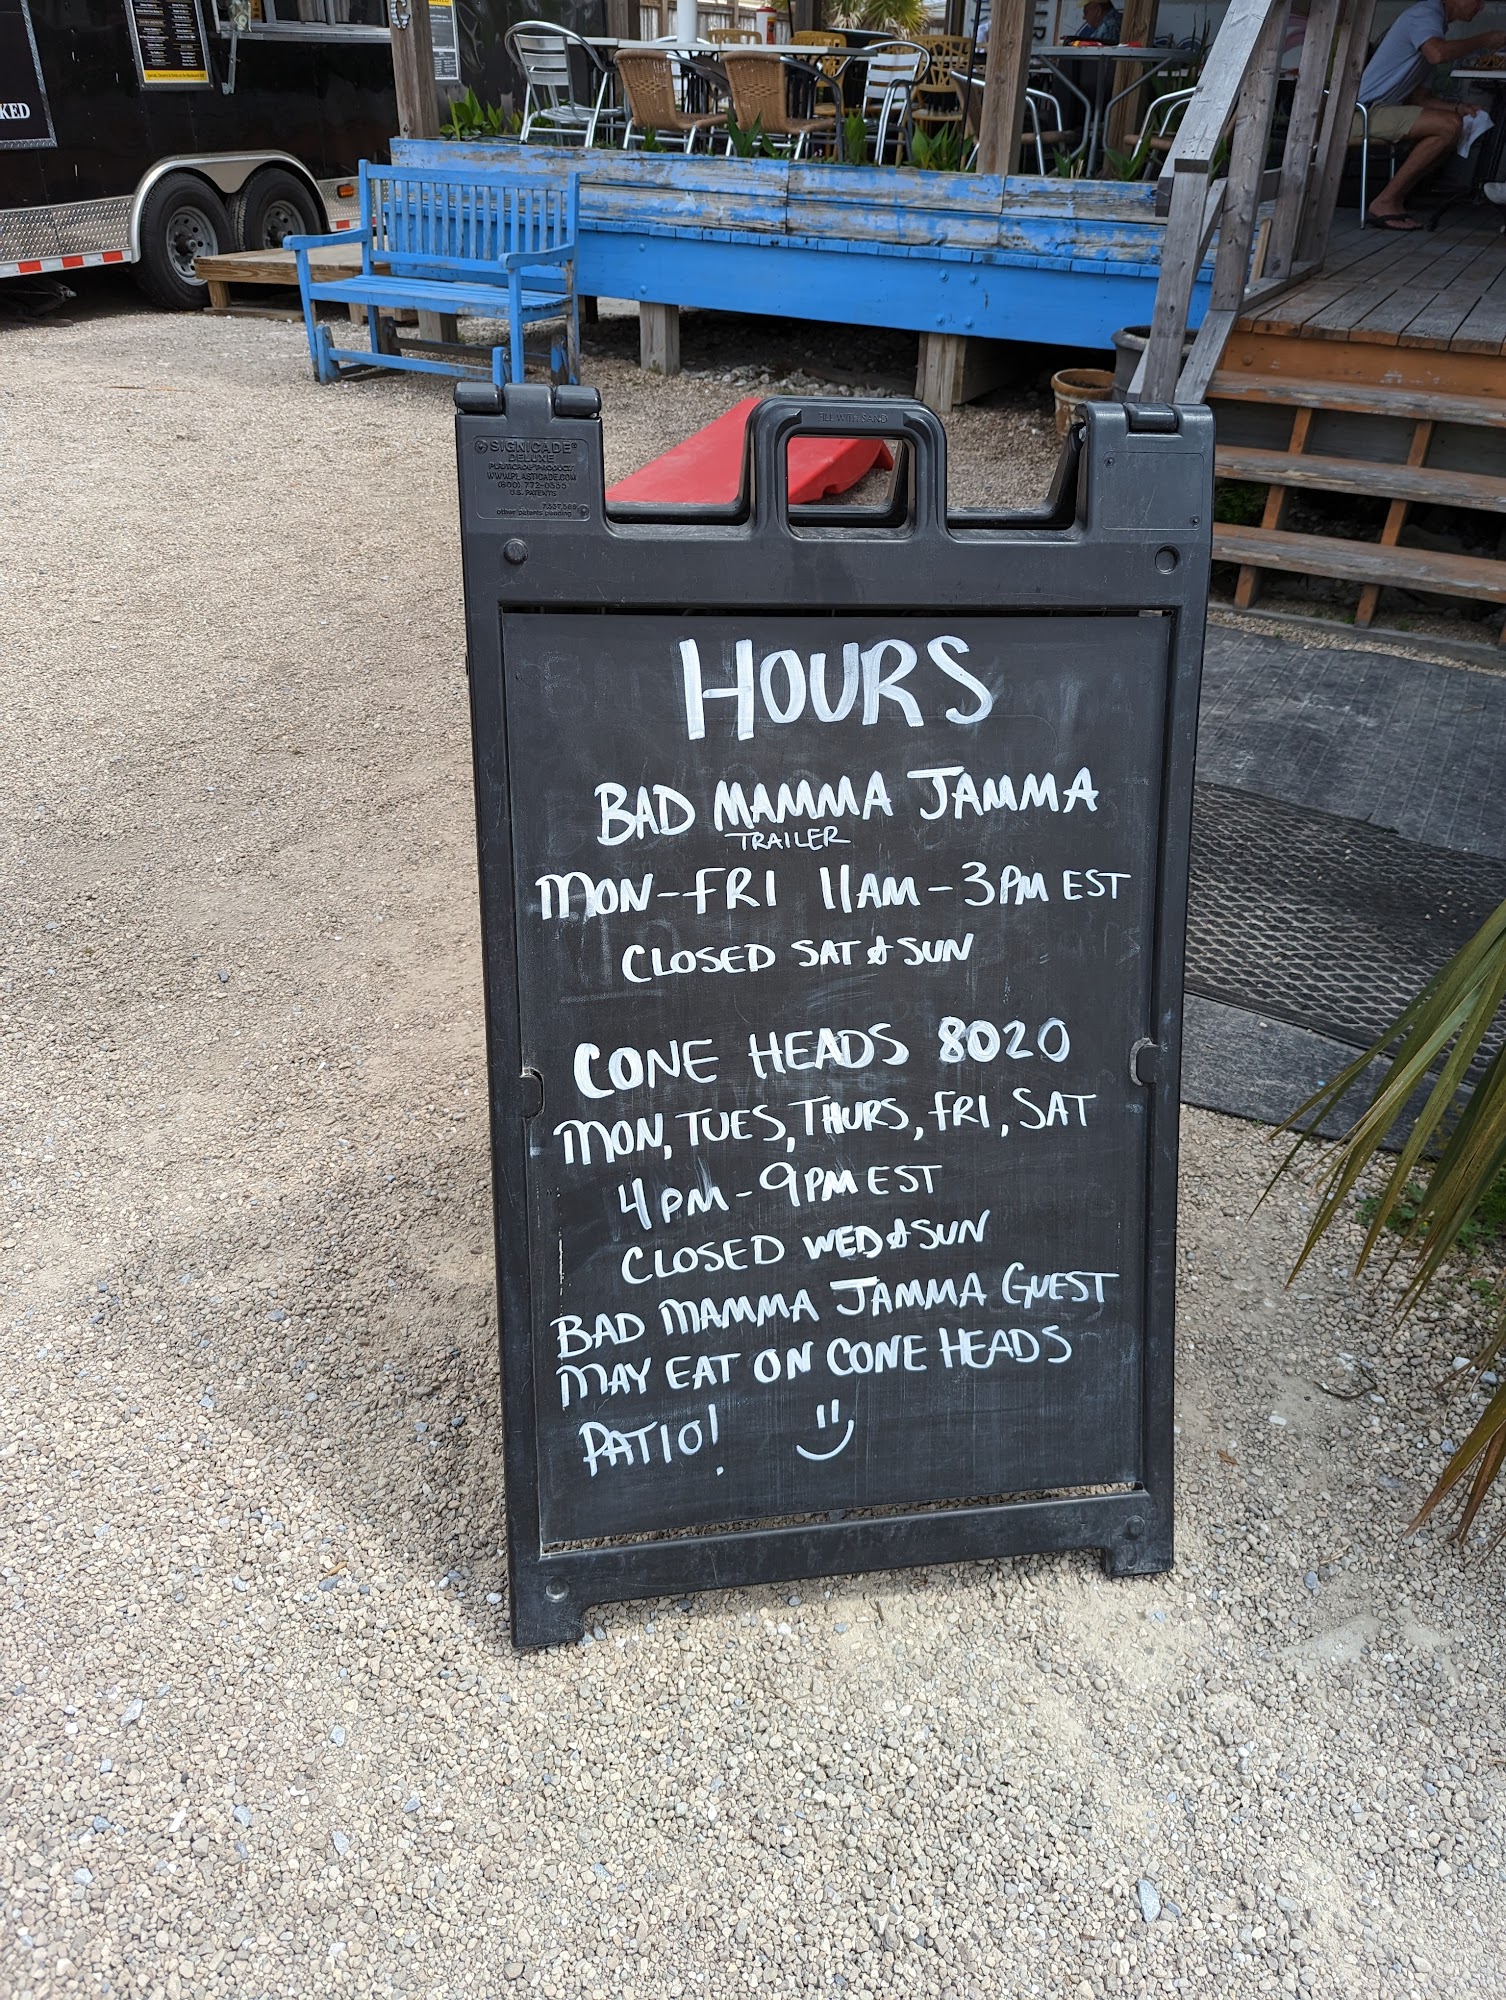 KED
FILL WITH SAND
SIGNICADE®
DELUXE
PLASTICADE® PRODUCT
WWW.PLASTICADE.COM
(800) 772-0355
U.S. PATENTS
other patents pending
HOURS
BAD MAMMA JAMMA
TRAILER
MON-FRI 11AM-3PM EST
CLOSED SAT & SUN
CONE HEADS 8020
MON, TUES, THURS, FRI, SAT
4PM-9PM EST
CLOSED WED & SUN
BAD MAMMA JAMMA GUEST
MAY EAT ON CONE HEADS
PATIO!